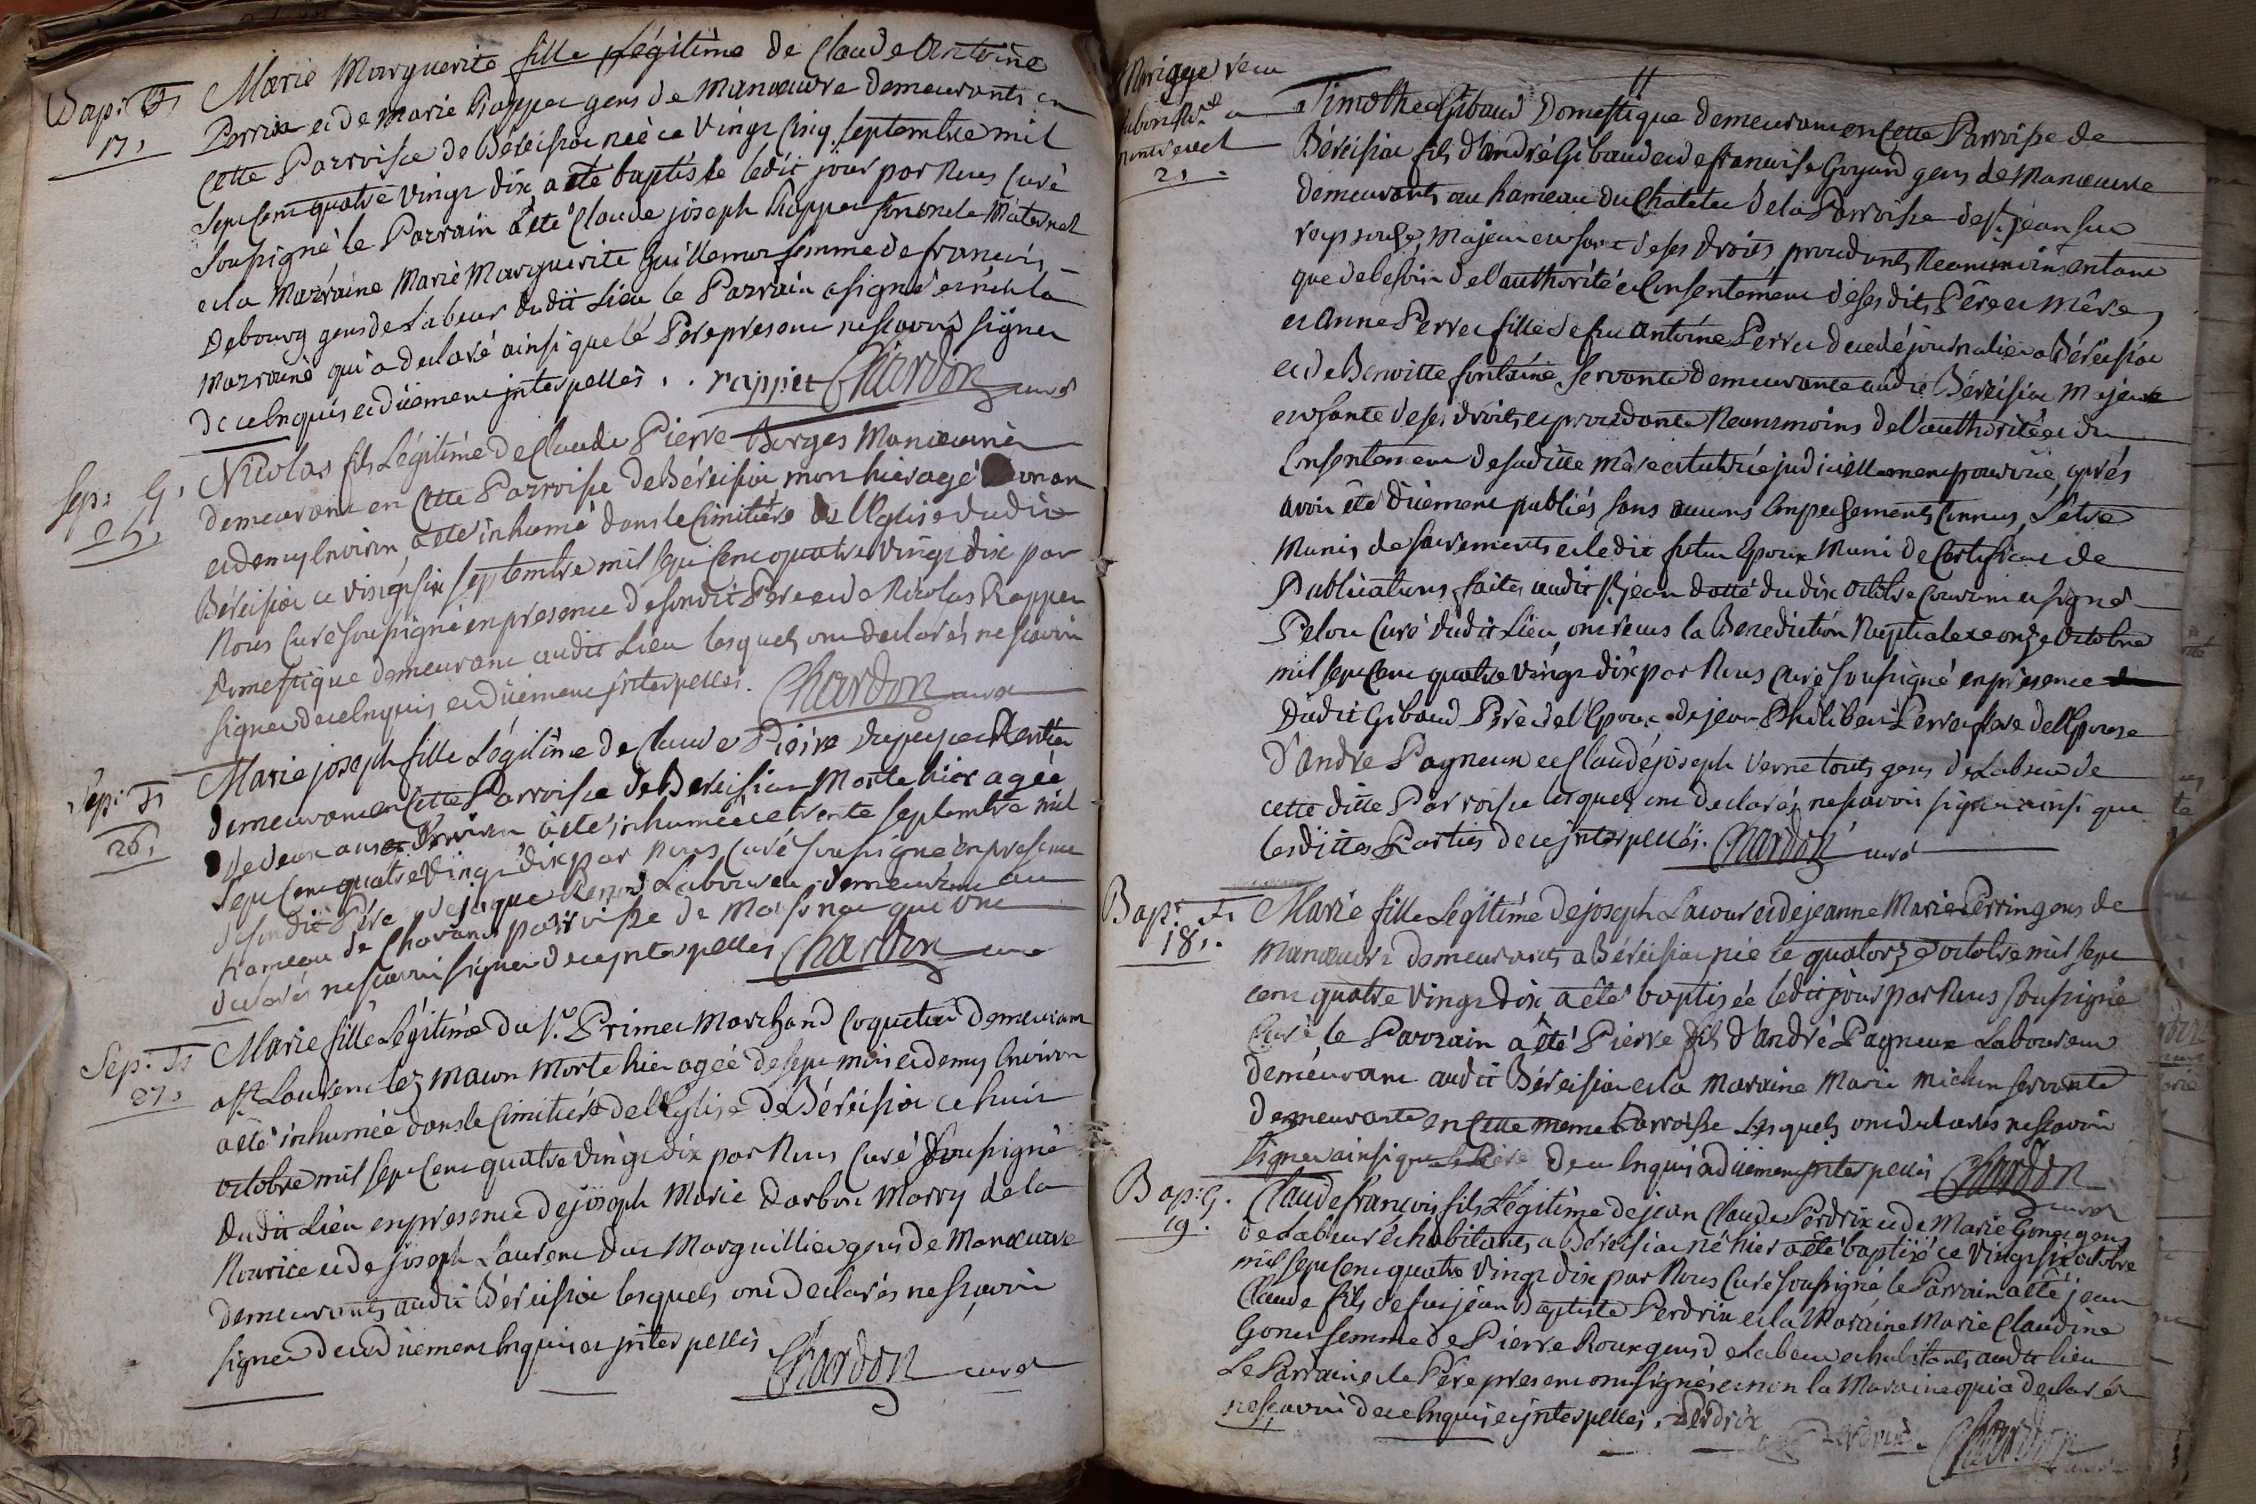 Bap: Fs
17,
Marie Marguerite fille Légitime de Claude Antoine
Perrin et de Marie Rappet gens de Manœuvre demeurants en
Cette Parroisse de Béreisiat née ce Vingt Cinq septembre mil
sept Cent quatre Vingt dix a été baptisée ledit jour par Nous Curé
soussigné le Parrain a été Claude joseph Rappet son oncle Maternel
et la Marraine Marie Marguerite Guillemot femme de francois
Debourg gens de Labeur dudit Lieu le Parrain a signé et non la
Marraine qui a declaré ainsi que le Pere present ne scavoir signer
de ce Enquis et düement interpellés. . rappet Chardon curé
Sep: G,
25,
Nicolas fils Légitime de Claude Pierre Borges Manœuvrier
demeurant en Cette Parroisse de Béreisiat mort hier agé d'un an
et demy Environ, a été inhumé dans le Cimitière de l'Eglise dudit
Béreisiat ce vingt six septembre mil sept Cent quatre Vingt dix par
Nous Curé soussigné en presence de sondit Pere et de Nicolas Rappet
Domestique demeurant audit Lieu lesquels ont declarés ne scavoir
signer de ce Enquis et düement interpellés. Chardon curé
Sep: Fs
26,
Marie joseph fille Légitime de Claude Pierre Dupuget Rentier
demeurant en Cette Parroisse de Béreisiat Morte hier agée
de deux ans Environ a été inhumée ce trente septembre mil
sept Cent quatre Vingt dix par nous Curé soussigné en presence
de sondit Pére et de jaque Renoud Laboureur demeurant au
hameau de Chavanes parroisse de Marsonas qui ont
declarés ne scavoir signer de ce interpellés Chardon curé
Sep: Fs
27,
Marie fille Légitime du Sr. Primet Marchand Coquetier demeurant
a St. Laurent lez Macon Morte hier agée de sept mois et demy Environ
a été inhumée dans le Cimitière de l'Eglise de Béreisiat ce huit
octobre mil sept Cent quatre Vingt dix par Nous Curé soussigné
dudit Lieu en presence de joseph Marie Darbon Marry de la
Nourice et de joseph Laurent dit Marguillier gens de Manœuvre
demeurants audit Béreisiat lesquels ont declarés ne scavoir
signer de ce düement Enquis et interpellés
Chardon curé
Mariage
21.
Timothée Gibaud Domestique demeurant en Cette Parroise de
Béreisiat fils d'André Gibaud et de francoise Goyard gens de Manœuvre
demeurants au hameau du Chatelet de la Parroisse de St. jean sur
reyssouse, Majeur et usant de ses droits, procedant Neanmoins entant
que de besoin de l'authorité et Consentement de ses dits Pére et Mère
et Anne Perret fille de feu Antoine Perret decedé journalier a Béreisiat
et de Benoitte fontaine servante demeurante audit Béreisiat Majeure
et usante de ses droits et procedante Neanmoins de l'authorité et du
Consentement de sadite mère et tutrice judiciellement pourvüe, aprés
avoir été düement publiés sans aucuns Empechements Connus, s'etre
Munis de sacrements et ledit futur Epoux Muni de Certificat de
Publications faites audit St. jean datté du dix octobre Courant et signé
Pelou Curé dudit Lieu, ont recus la Benediction Nuptiale ce onze octobre
mil sept Cent quatre Vingt dix par Nous Curé soussigné en presence
dudit Gibaud Père de l'Epoux de jean Philibert Perret frere de l'Epouse
d'andre Pagneux et Claude joseph Verne touts gens de Labeur de
cette ditte Parroisse lesquels ont declarés ne scavoir signer ainsi que
lesdittes Parties de ce interpellés. Chardon curé
Bap: Fs
18,.
Marie fille Legitime de joseph Lacour et de jeanne Marie Perrin gens de
Manœuvre demeurants a Béreisiat née le quatorze octobre mil sept
cent quatre Vingt dix a été baptisée ledit jour par Nous soussigné
Curé, le Parrain a été Pierre fils d'andré Pagneux Laboureur
demeurant audit Béreisiat et la maraine Marie Michon servante
demeurante en Cette meme Parroisse Lesquels ont declarés ne scavoir
signer ainsi que le Pére de ce Enquis et düement interpellés Chardon
curé
Bap: G.
19.
Claude francois fils Légitime de jean Claude Perdrix et de Marie Gonet gens
de Labeur et habitants a Béreisiat né hier a été baptisé ce Vingt six octobre
mil sept Cent quatre Vingt dix par Nous Curé soussigné le Parrain a été jean
Claude fils de feu jean Baptiste Perdrix et la Maraine Marie Claudine
Gonet femme de Pierre Roux gens de Labeur et habitants audit lieu
Le Parrain et le Pére present ont signés et non la Maraine qui a declaré
ne scavoir de ce Enquis et interpellés. Perdrix
Perdrix. Chardon
curé